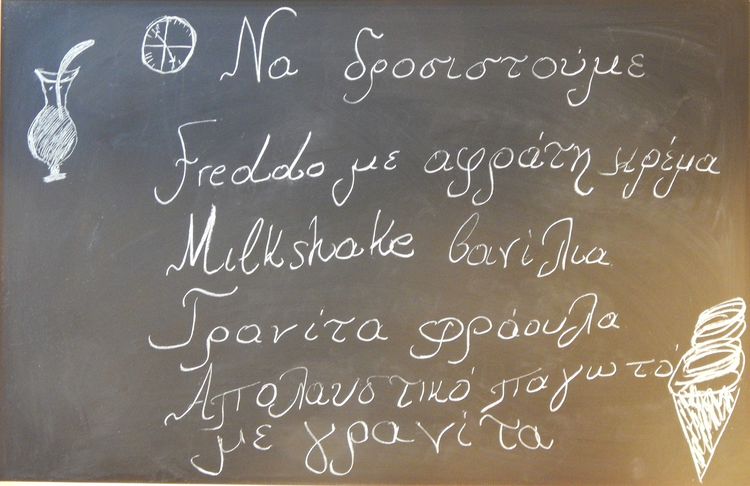 Να δροσιστούμε
Freddo με αφράτη κρέμα
Milkshake βανίλια
Γρανίτα φράουλα
Απολαυστικό παγωτό
με γρανίτα